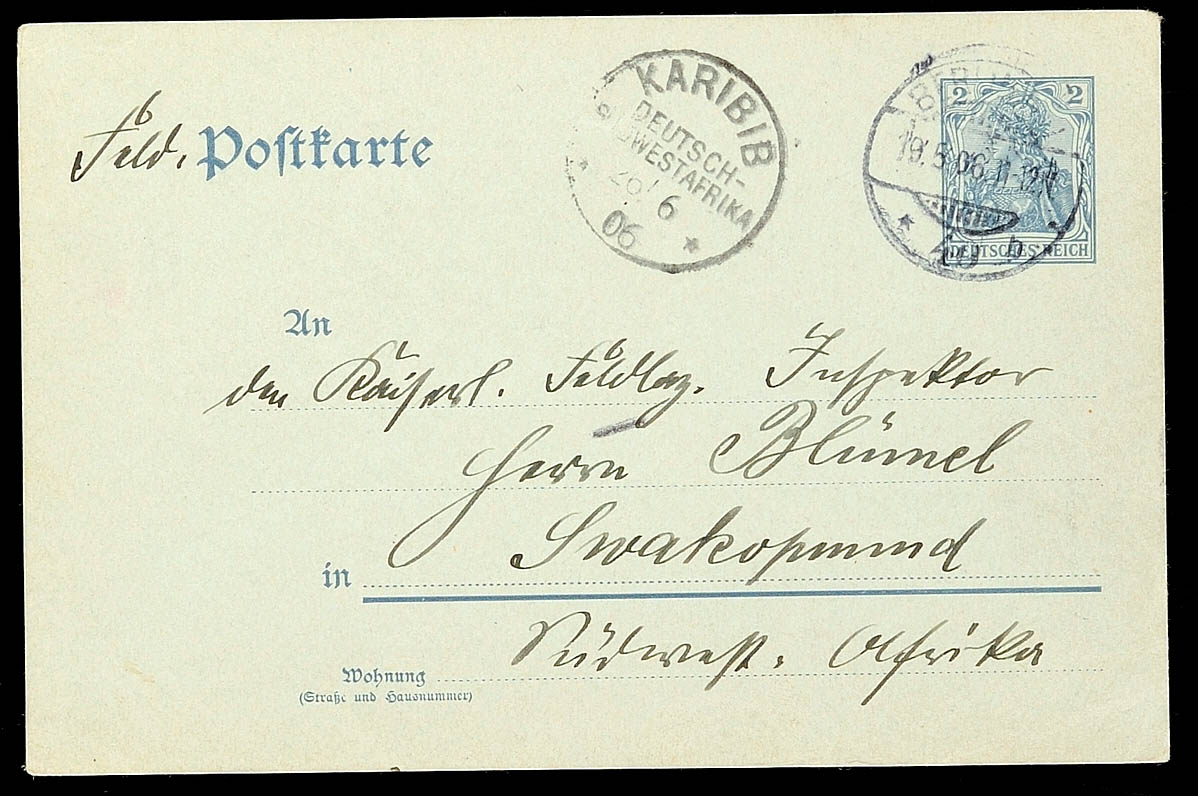 Feld. Postkarte
KARIBIB
DEUTSCH-
SÜDWESTAFRIKA
26/6
06
2 2
BERLIN
19.5.06.11-12
b
DEUTSCHES REICH
An
den Kaiserl. Feldlaz. Inspektor
Herrn Blümel
in Swakopmund
Südwest. Afrika
Wohnung
(Straße und Hausnummer)